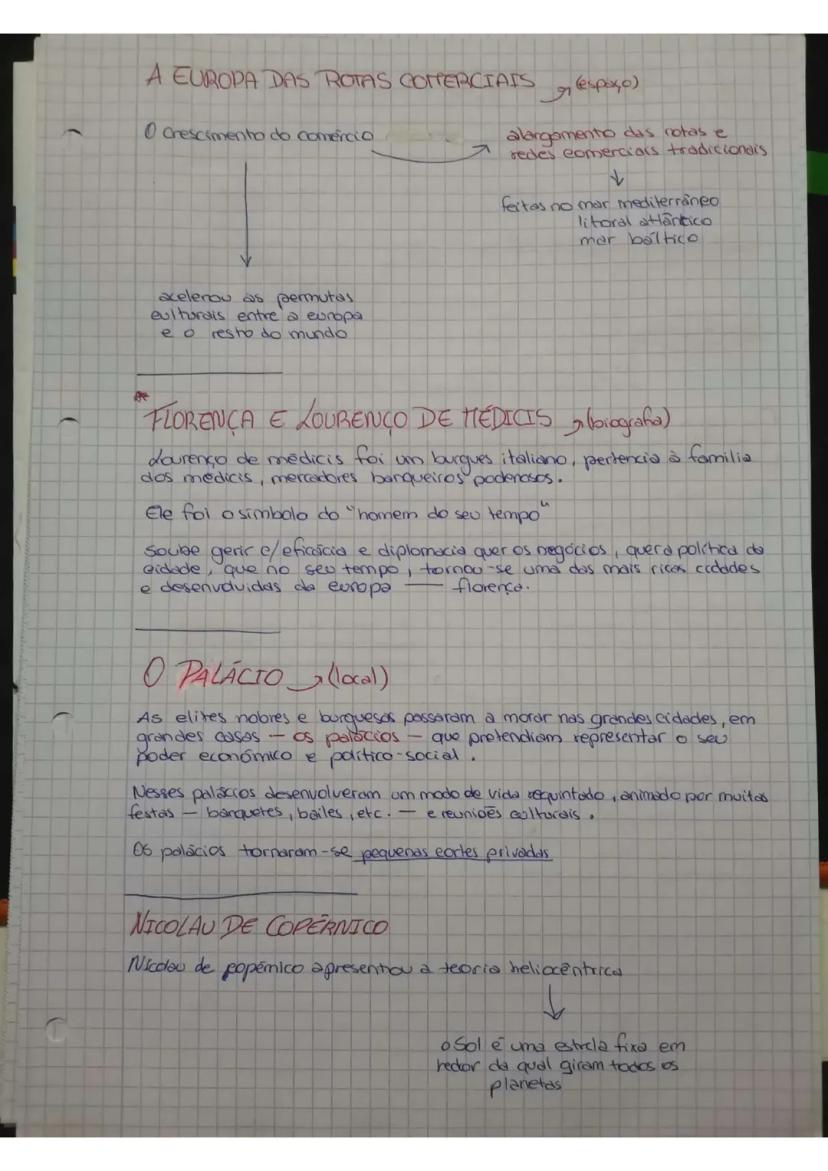 A EUROPA DAS ROTAS COMERCIAIS (espaço)
O crescimento do comércio
alargamento das rotas e
redes comerciais tradicionais
feitas no mar mediterrâneo
litoral atlântico
mar báltico
acelerou as permutas
culturais entre a europa
e o resto do mundo
* FLORENÇA E LOURENÇO DE MÉDICIS (biografia)
Lourenço de médicis foi um burgues italiano, pertencia à familia
dos médicis, mercadores banqueiros poderosos.
Ele foi o simbolo do "homem do seu tempo"
Soube gerir c/eficácia e diplomacia quer os negócios, quer a política da
cidade, que no seu tempo, tornou-se uma das mais ricas cidades
e desenvolvidas da europa — florença.
O PALÁCIO (local)
As elites nobres e burguesas passaram a morar nas grandes cidades, em
grandes casas — os palácios — que pretendiam representar o seu
poder económico e político-social.
Nesses palácios desenvolveram um modo de vida requintado, animado por muitas
festas — banquetes, bailes, etc. — e reuniões culturais.
Os palácios tornaram-se pequenas cortes privadas
NICOLAU DE COPÉRNICO
Nicolau de popérnico apresentou a teoria heliocêntrica
o Sol é uma estrela fixa em
redor da qual giram todos os
planetas